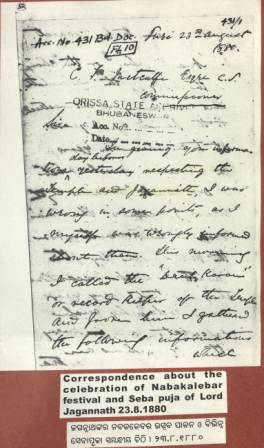 431/1
Acc. No 431 Bd. Doc. Puri 23rd August
1880.
C. T. Metcalfe Esqre C.S.
Commissioner
ORISSA STATE ARCHIVES
BHUBANESWAR
Sir
Acc. No.
Date
In giving you information
day before
yesterday respecting the
temple and Jagannath, I was
wrong in some points, as I
myself was wrongly informed
about them. This morning
I called the
or record keeper of the Temple
and from him I gathered
the following informations
which
Correspondence about the
celebration of Nabakalebar
festival and Seba puja of Lord
Jagannath 23.8.1880
ଜଗନ୍ନାଥଙ୍କର ନବକଳେବର ଉତ୍ସବ ପାଳନ ଓ ବିଭିନ୍ନ
ସେବାପୂଜା ସମ୍ବନ୍ଧୀୟ ଚିଠି । ୨୩.୮.୧୮୮୦